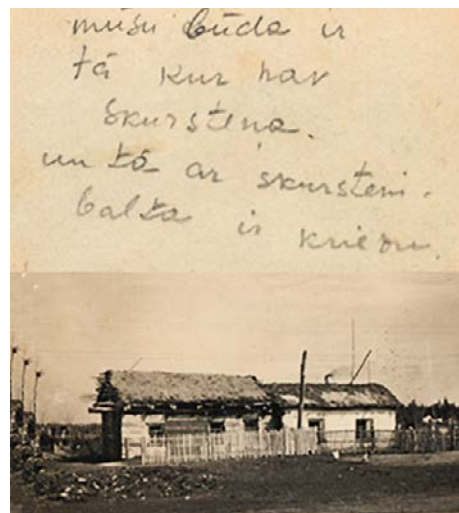 mūsu būda ir
tā kur nav
skursteņa.
un tā ar skursteni.
balta ir krievu.